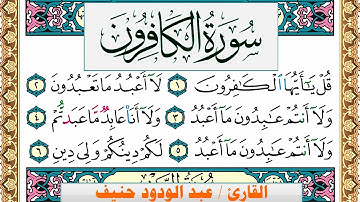 سُورَةُ الْكَافِرُونَ
قُلْ يَٰٓأَيُّهَا ٱلْكَٰفِرُونَ ١ لَآ أَعْبُدُ مَا تَعْبُدُونَ ٢
وَلَآ أَنتُمْ عَٰبِدُونَ مَآ أَعْبُدُ ٣ وَلَآ أَنَا۠ عَابِدٌ مَّا عَبَدتُّمْ ٤
وَلَآ أَنتُمْ عَٰبِدُونَ مَآ أَعْبُدُ ٥ لَكُمْ دِينُكُمْ وَلِىَ دِينِ
القارئ / عبد الودود حنيف